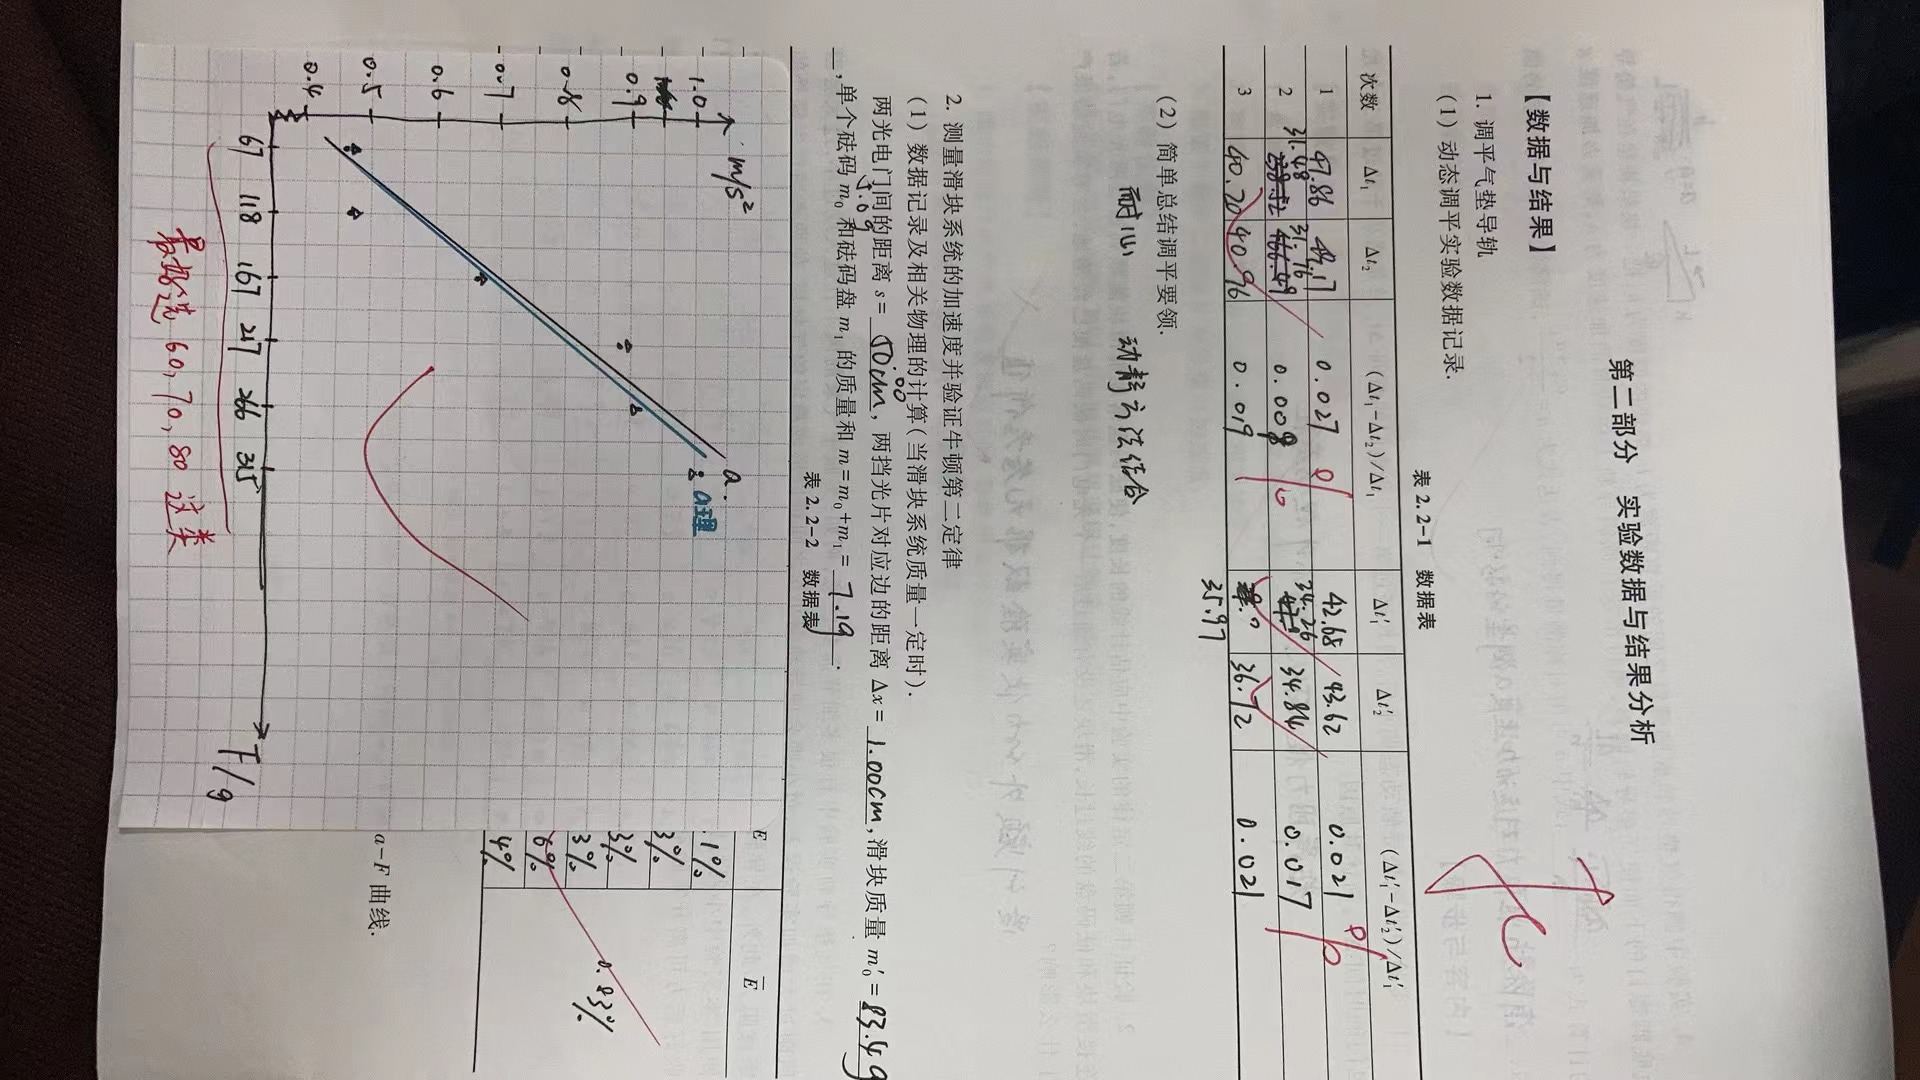 第二部分 实验数据与结果分析
【数据与结果】
1. 调平气垫导轨
(1) 动态调平实验数据记录.
表 2.2-1 数据表
次数 Δt₁ Δt₂ (Δt₁-Δt₂)/Δt₁ Δt₁′ Δt₂′ (Δt₁′-Δt₂′)/Δt₁′
1 47.86 49.17 0.027 42.68 43.62 0.021
2 31.48 31.76 0.008 34.26 34.84 0.017
3 40.20 40.96 0.019 35.97 36.72 0.021
(2) 简单总结调平要领.
耐心 动静方法结合
2. 测量滑块系统的加速度并验证牛顿第二定律
(1) 数据记录及相关物理的计算(当滑块系统质量一定时).
两光电门间的距离 s= 50.00cm, 两挡光片对应边的距离 Δx= 1.00cm, 滑块质量 m₀′= 83.4g
, 单个砝码 m₀ 5.0g 和砝码盘 m₁ 的质量和 m=m₀+m₁= 7.19 .
表 2.2-2 数据表
E Ē
.1%
3%
3%
3%
6%
4%
0.83%
m/s²
1.0
0.9
0.8
0.7
0.6
0.5
0.4
67 118 167 217 266 315
F/g
a
a理
最好选 60, 70, 80 这类
a-F 曲线.